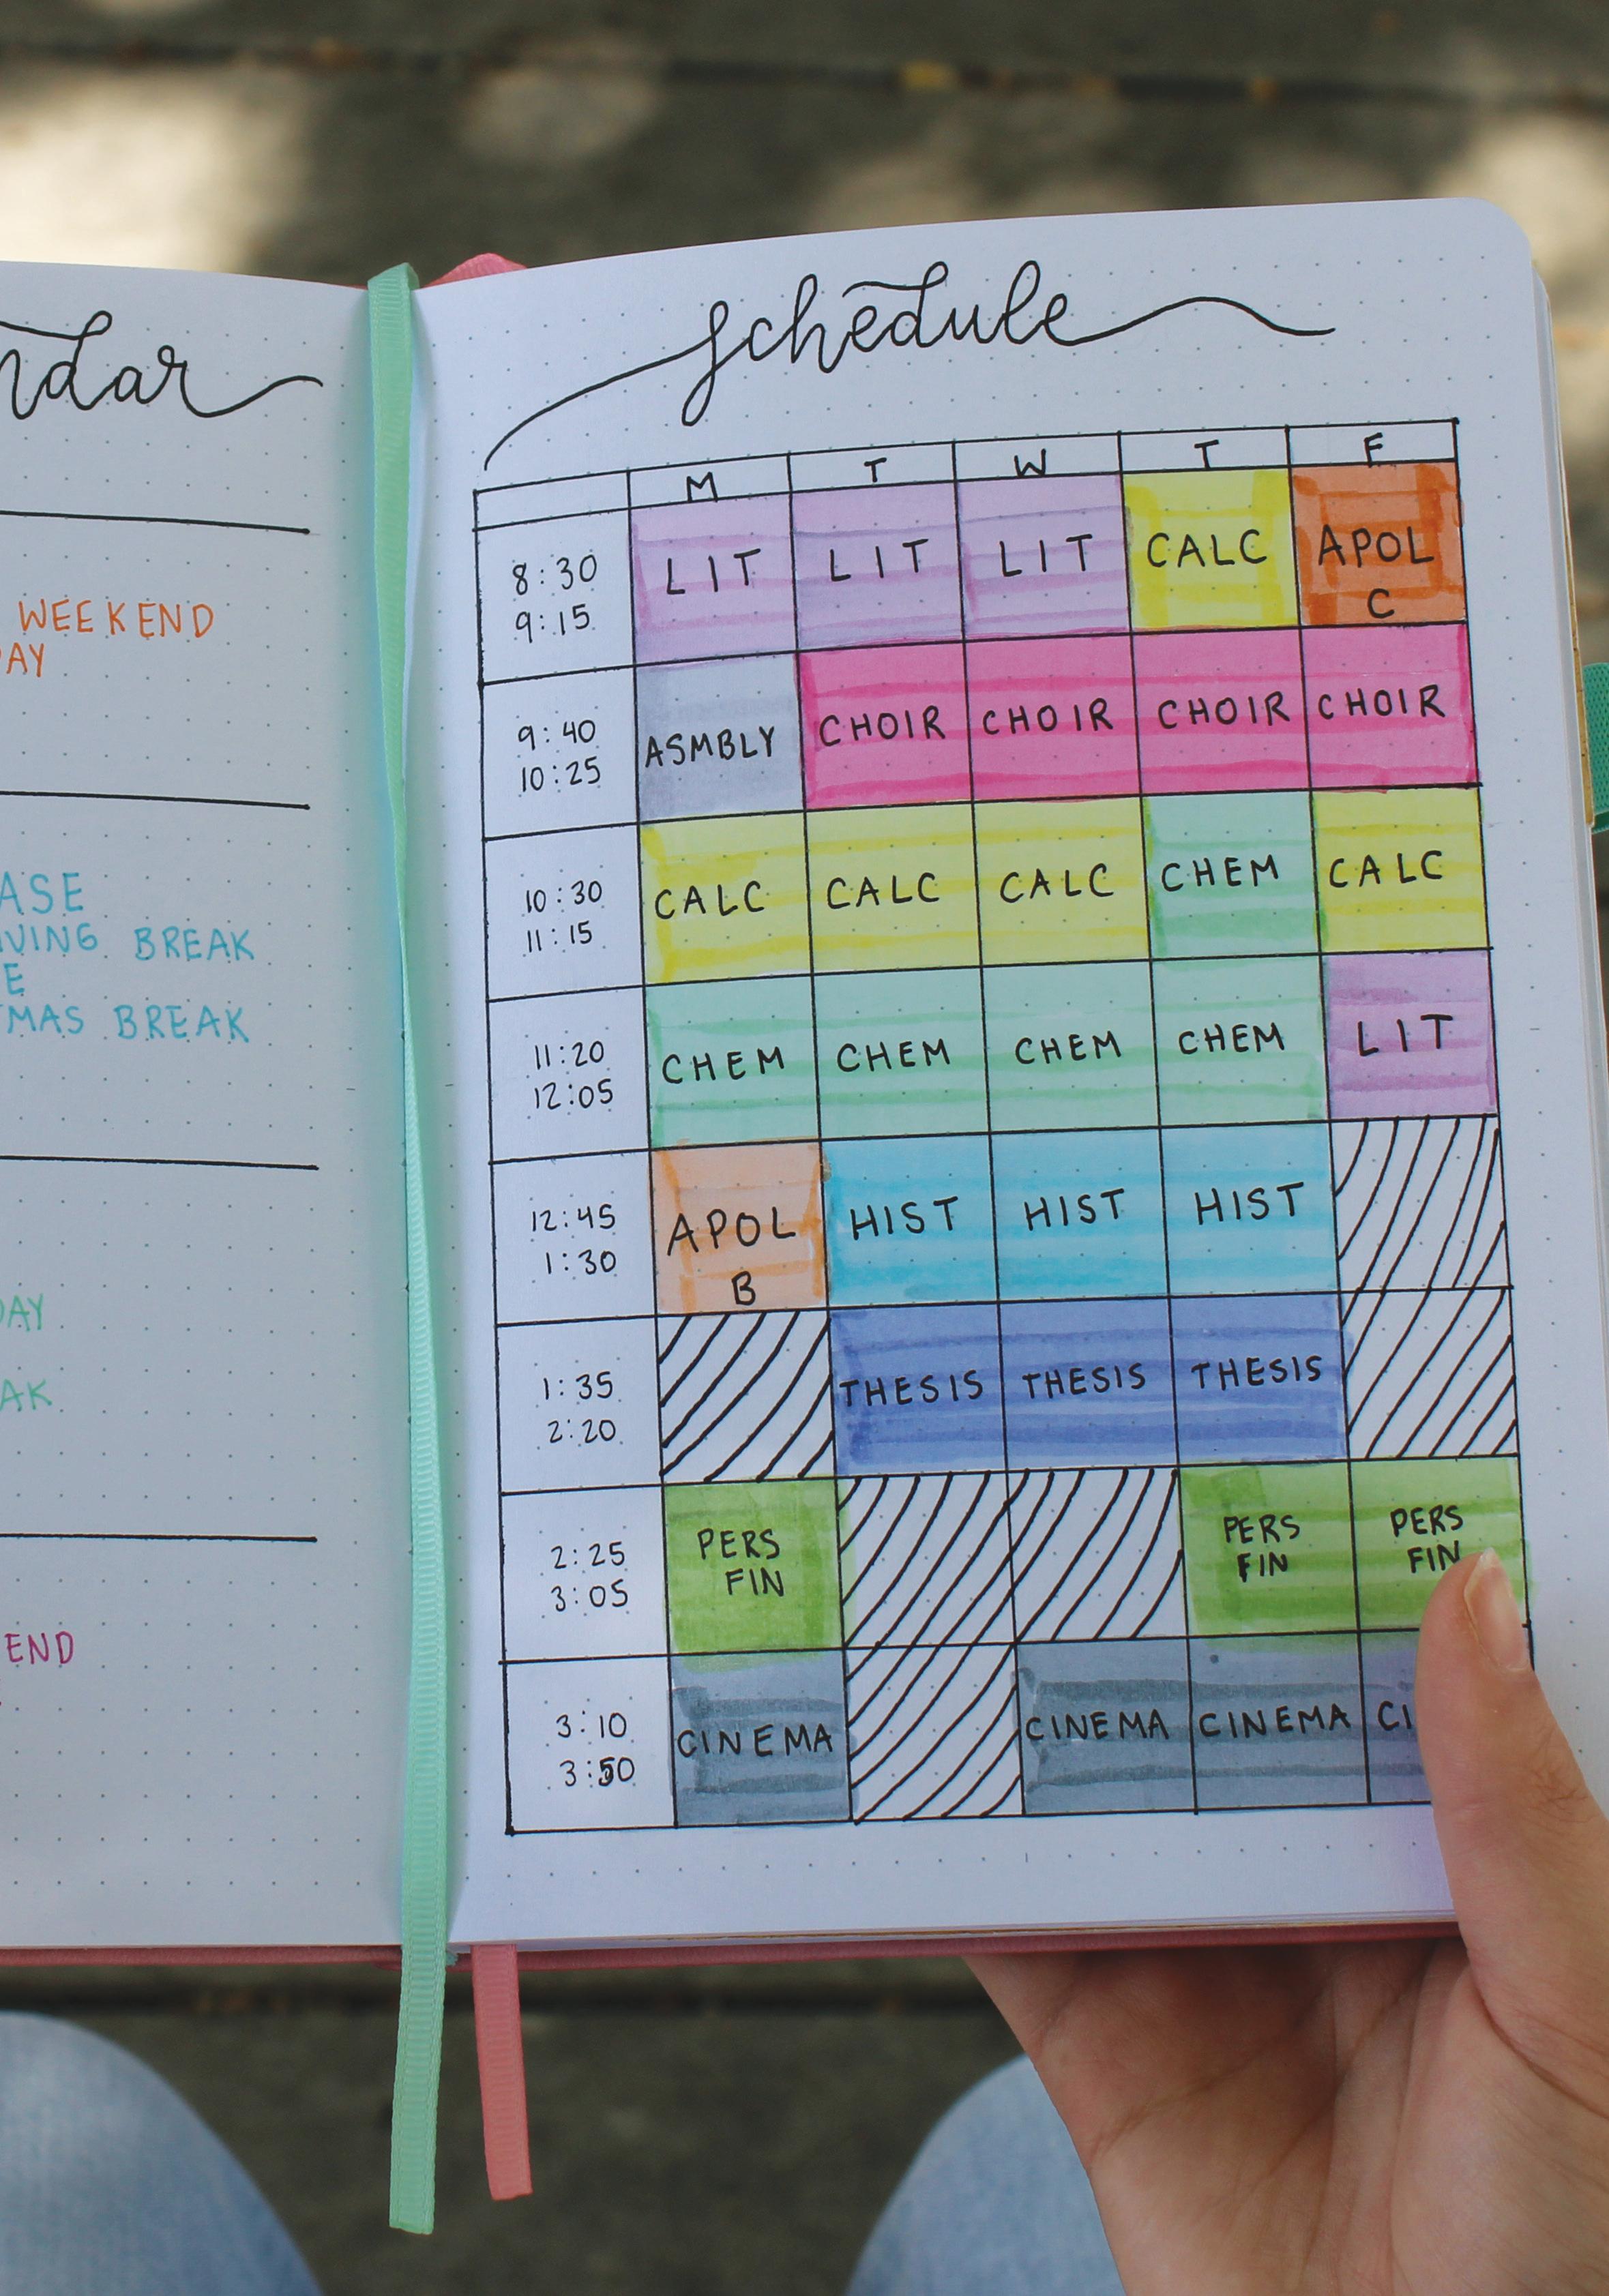 WEEKEND
BREAK
BREAK
schedule
M T W T F
8:30 LIT LIT LIT CALC APOL
9:15 C
9:40 ASMBLY CHOIR CHOIR CHOIR CHOIR
10:25
10:30 CALC CALC CALC CHEM CALC
11:15
11:20 CHEM CHEM CHEM CHEM LIT
12:05
12:45 APOL HIST HIST HIST
1:30 B
1:35 THESIS THESIS THESIS
2:20
2:25 PERS PERS PERS
3:05 FIN FIN FIN
3:10 CINEMA CINEMA CINEMA CI
3:50